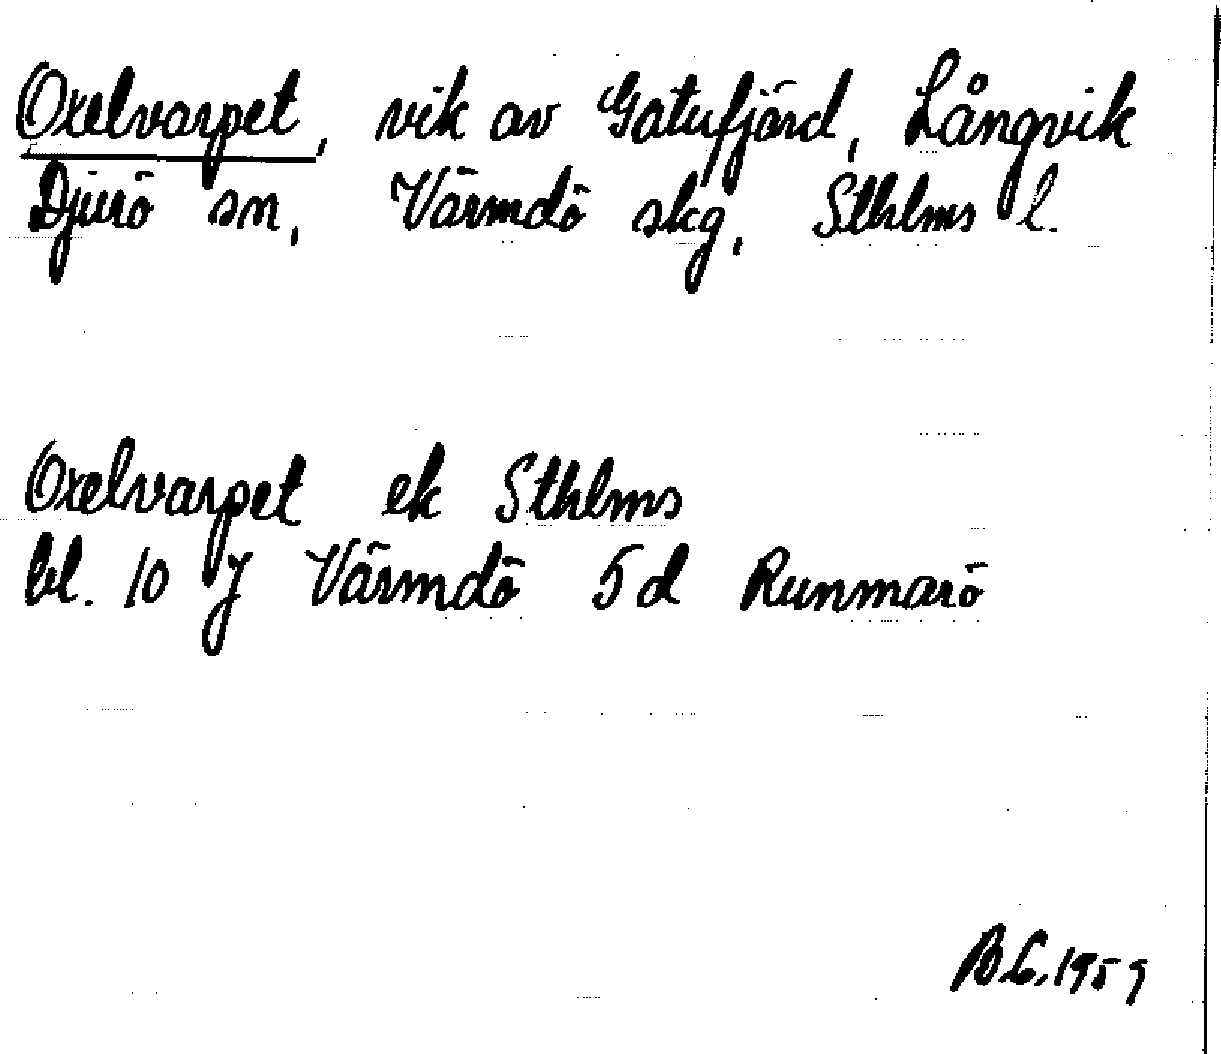 Oxelvarpet, vik av Gatufjärd, Långvik
Djurö sn, Värmdö skg, Sthlms l.
Oxelvarpet ek Sthlms
bl. 10 J Värmdö 5d Runmarö
1959